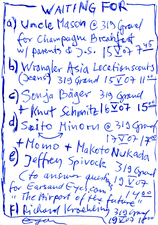 WAITING FOR
a) Uncle Mason @ 319 Grand
for Champagne Breakfast
w/ parents & J.S. 15 V 07 7 45
b) Wrangler Asia Locationscouts
(Jeans) 319 Grand 15 V 07 11 00
c) Sonja Bäger 319 Grand
+ Knut Schmitz 16 V 07 15 00
d) Seito Minoru @ 319 Grand
17 V 07 17 00
+ Momo + Makoto Nukada
e) Jeffrey Spivock 319 Grand
(to answer 19 V 07
for EarsandEyes.com 14 00
"The Airport of the future"
f) Richard 319 Grand
19 V 07